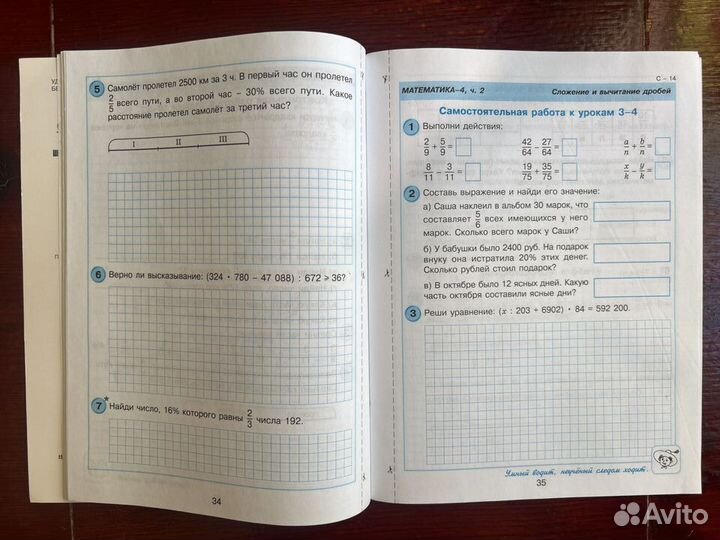 5 Самолёт пролетел 2500 км за 3 ч. В первый час он пролетел
2/5 всего пути, а во второй час – 30% всего пути. Какое
расстояние пролетел самолёт за третий час?
I II III
6 Верно ли высказывание: (324 · 780 – 47 088) : 672 > 36?
7* Найди число, 16% которого равны 2/3 числа 192.
34
С – 14
МАТЕМАТИКА–4, ч. 2 Сложение и вычитание дробей
Самостоятельная работа к урокам 3–4
1 Выполни действия:
2/9 + 5/9 = 42/64 – 27/64 = a/n + b/n =
8/11 – 3/11 = 19/75 + 35/75 = x/k – y/k =
2 Составь выражение и найди его значение:
а) Саша наклеил в альбом 30 марок, что
составляет 5/6 всех имеющихся у него
марок. Сколько всего марок у Саши?
б) У бабушки было 2400 руб. На подарок
внуку она истратила 20% этих денег.
Сколько рублей стоил подарок?
в) В октябре было 12 ясных дней. Какую
часть октября составили ясные дни?
3 Реши уравнение: (x : 203 + 6902) · 84 = 592 200.
Умный водит, неучёный следом ходит.
35
Avito